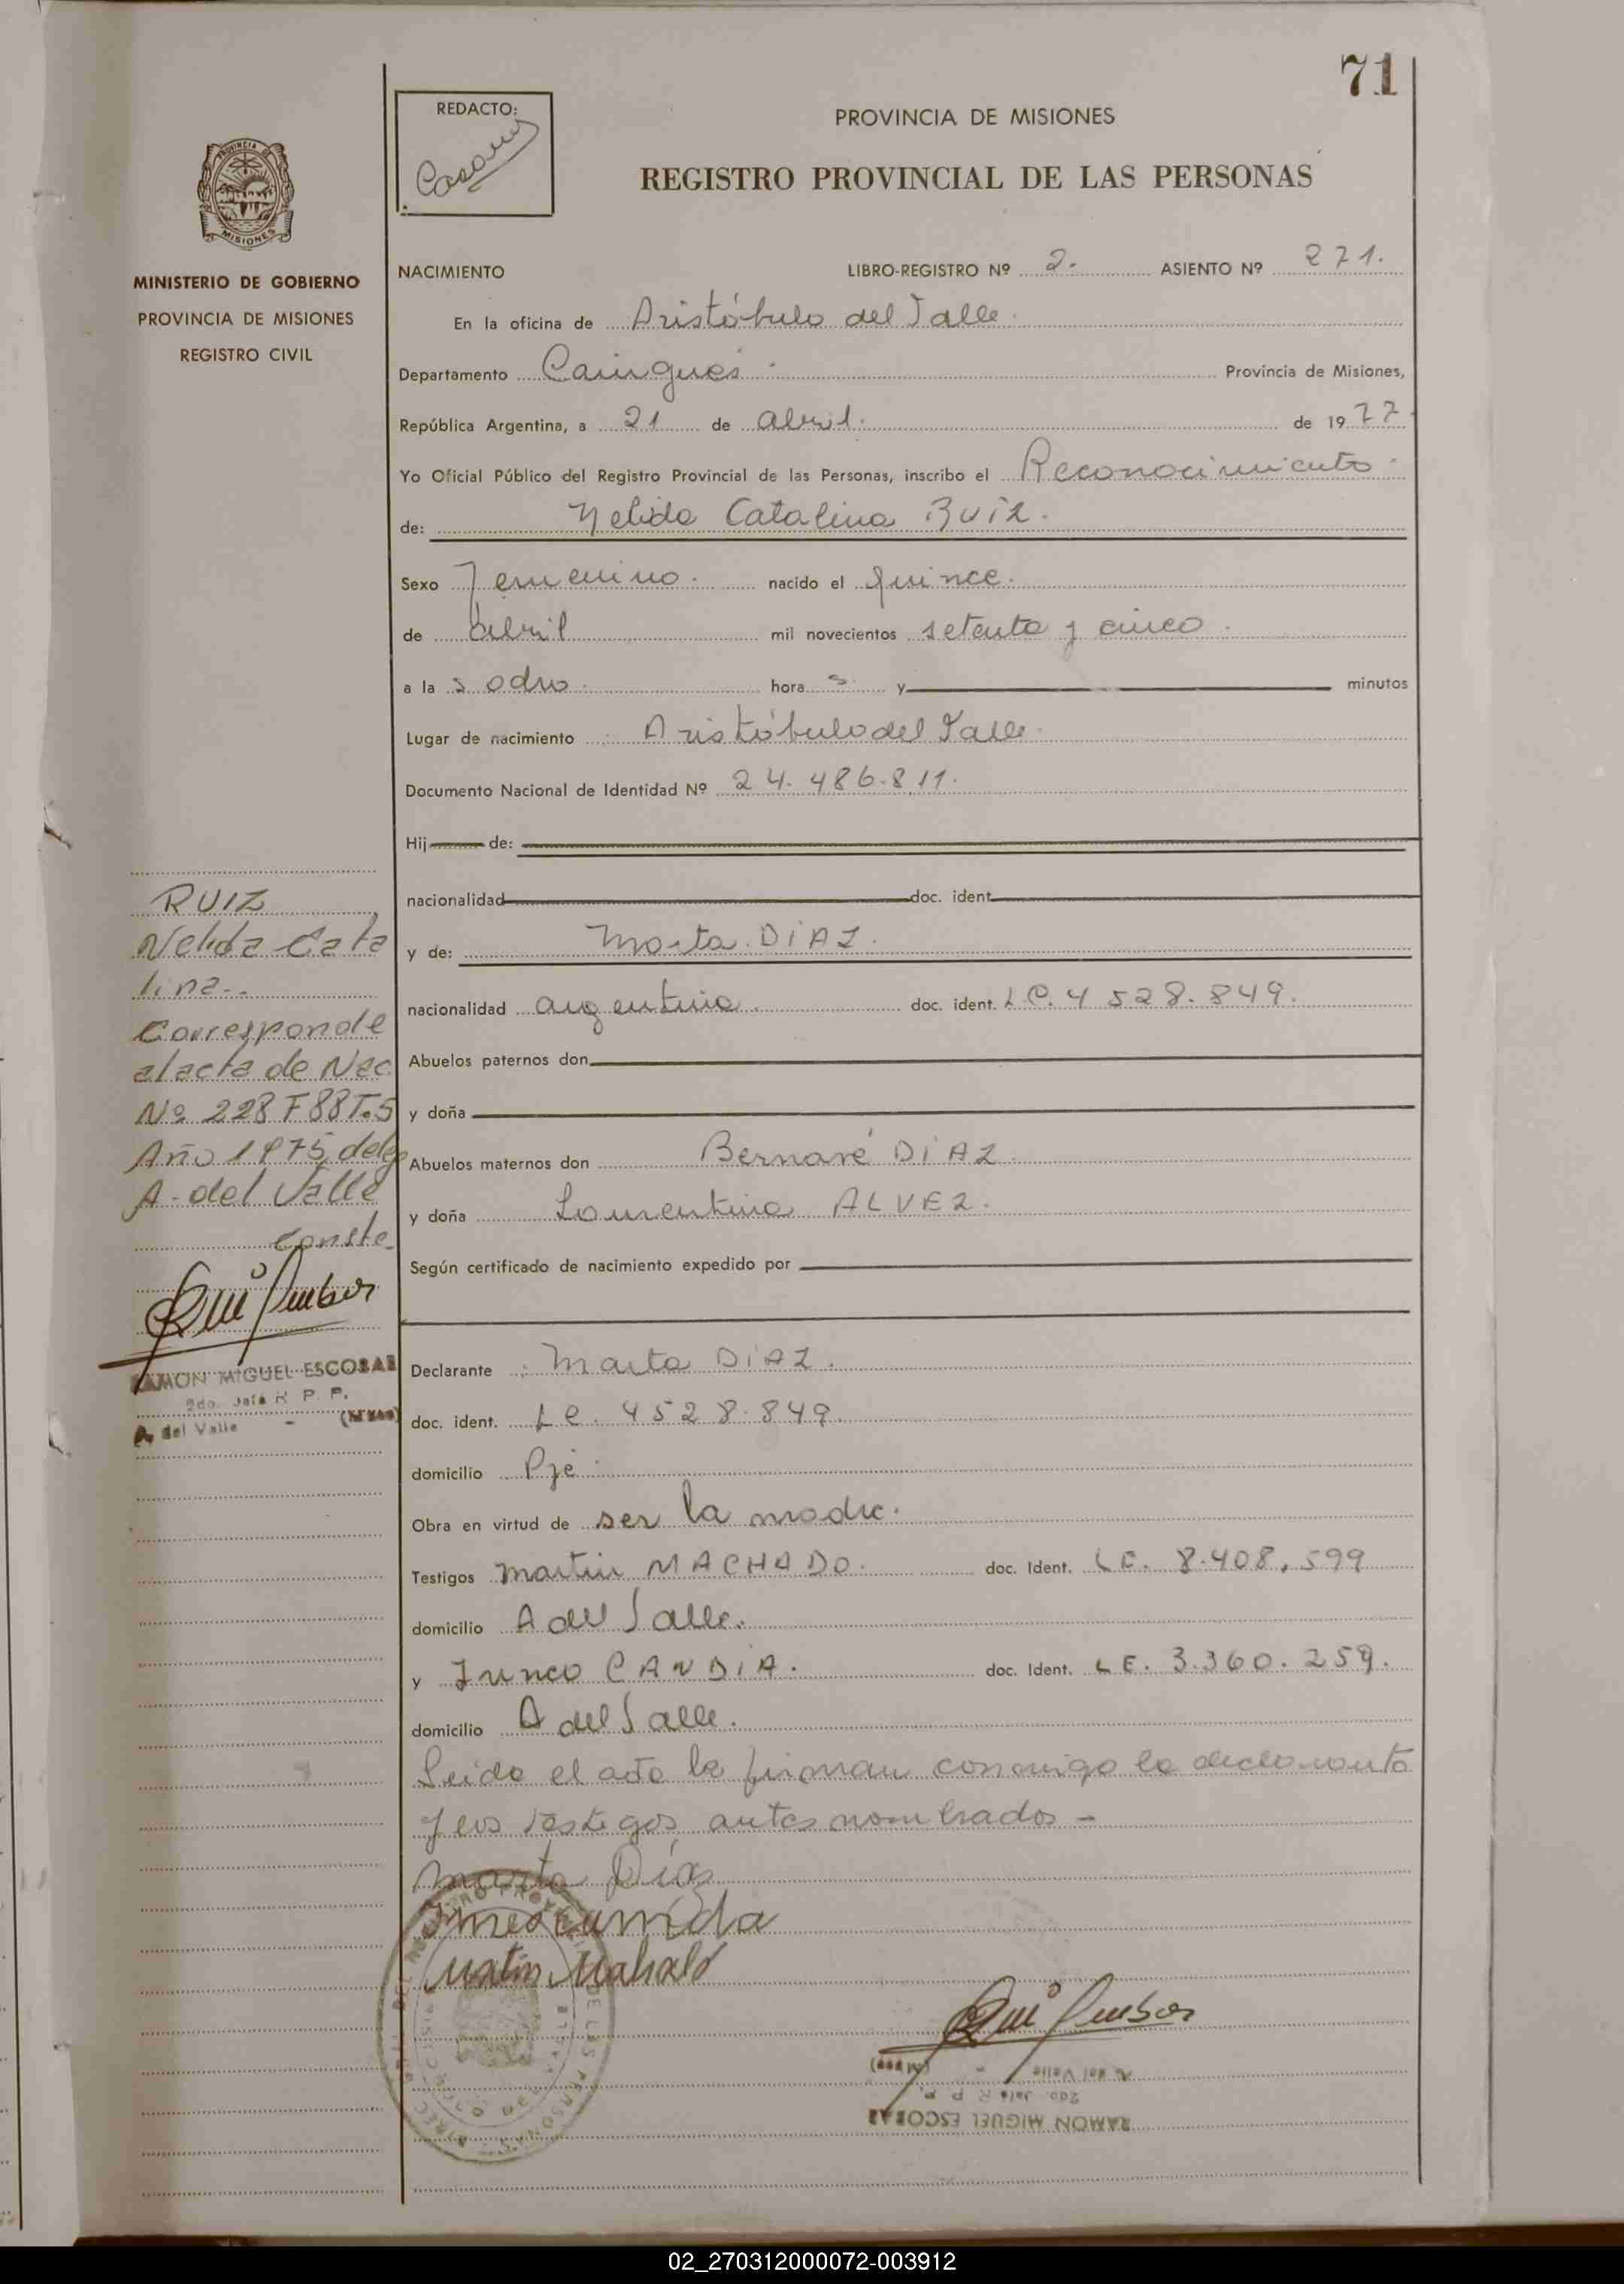 71
REDACTO:
PROVINCIA DE MISIONES
REGISTRO PROVINCIAL DE LAS PERSONAS
PROVINCIA DE
MISIONES
MINISTERIO DE GOBIERNO
PROVINCIA DE MISIONES
REGISTRO CIVIL
NACIMIENTO LIBRO-REGISTRO Nº 2. ASIENTO Nº 271.
En la oficina de Aristóbulo del Valle.
Departamento Cainguás. Provincia de Misiones,
República Argentina, a 21 de abril. de 1977.
Yo Oficial Público del Registro Provincial de las Personas, inscribo el Reconocimiento.
de: Nelida Catalina RUIZ.
Sexo Femenino. nacido el quince.
de abril mil novecientos setenta y cinco.
a la s ocho. hora s. y minutos
Lugar de nacimiento Aristóbulo del Valle.
Documento Nacional de Identidad Nº 24.486.811.
Hij de:
nacionalidad doc. ident.
y de: Marta DIAZ.
nacionalidad argentina. doc. ident. L C. 4 528.849.
Abuelos paternos don
y doña
Abuelos maternos don Bernavé DIAZ.
y doña Laurentina ALVEZ.
Según certificado de nacimiento expedido por
Declarante Marta DIAZ.
doc. ident. L C. 4528.849.
domicilio Pje.
Obra en virtud de ser la madre.
Testigos Martin MACHADO. doc. Ident. L E. 8.408.599
domicilio A del Valle.
y CANDIA. doc. Ident. L E. 3.360.259.
domicilio A del Valle.
Leida el acta la firman conmigo la declarante
y los testigos antes nombrados -
Marta Díaz
RUIZ
Nelida Cata
lina..
Corresponde
al acta de Nac.
Nº 228 F 88 T.5
Año 1975 deleg
A. del Valle
Conste.
RAMON MIGUEL ESCOBAR
2do. Jefe R P. P.
A. del Valle - (Mnes)
A. del Valle - (Mnes)
2do. Jefe R P P.
RAMON MIGUEL ESCOBAR
02_270312000072-003912